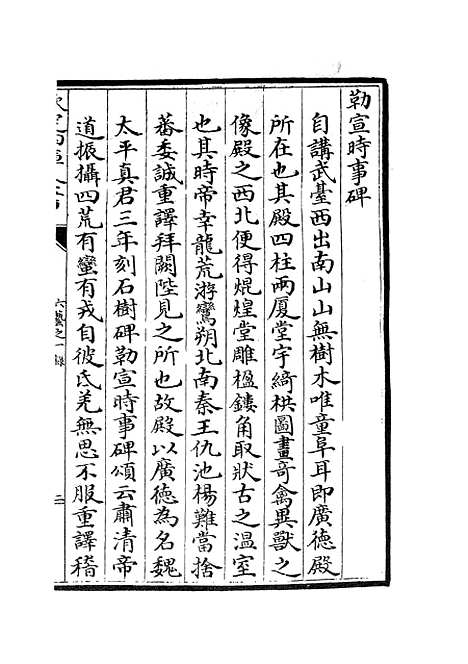 勒宣時事碑
自講武臺西出南山山無樹木唯童阜耳即廣德殿
所在也其殿四柱兩厦堂宇綺栱圖畫奇禽異獸之
像殿之西北便得焜煌堂雕楹鏤角取狀古之温室
也其時帝幸龍荒游鸞朔北南秦王仇池楊難當捨
蕃委誠重譯拜闕陛見之所也故殿以廣德為名魏
太平真君三年刻石樹碑勒宣時事碑頌云肅清帝
道振攝四荒有蠻有戎自彼氐羌無思不服重譯稽
六藝之一録
三